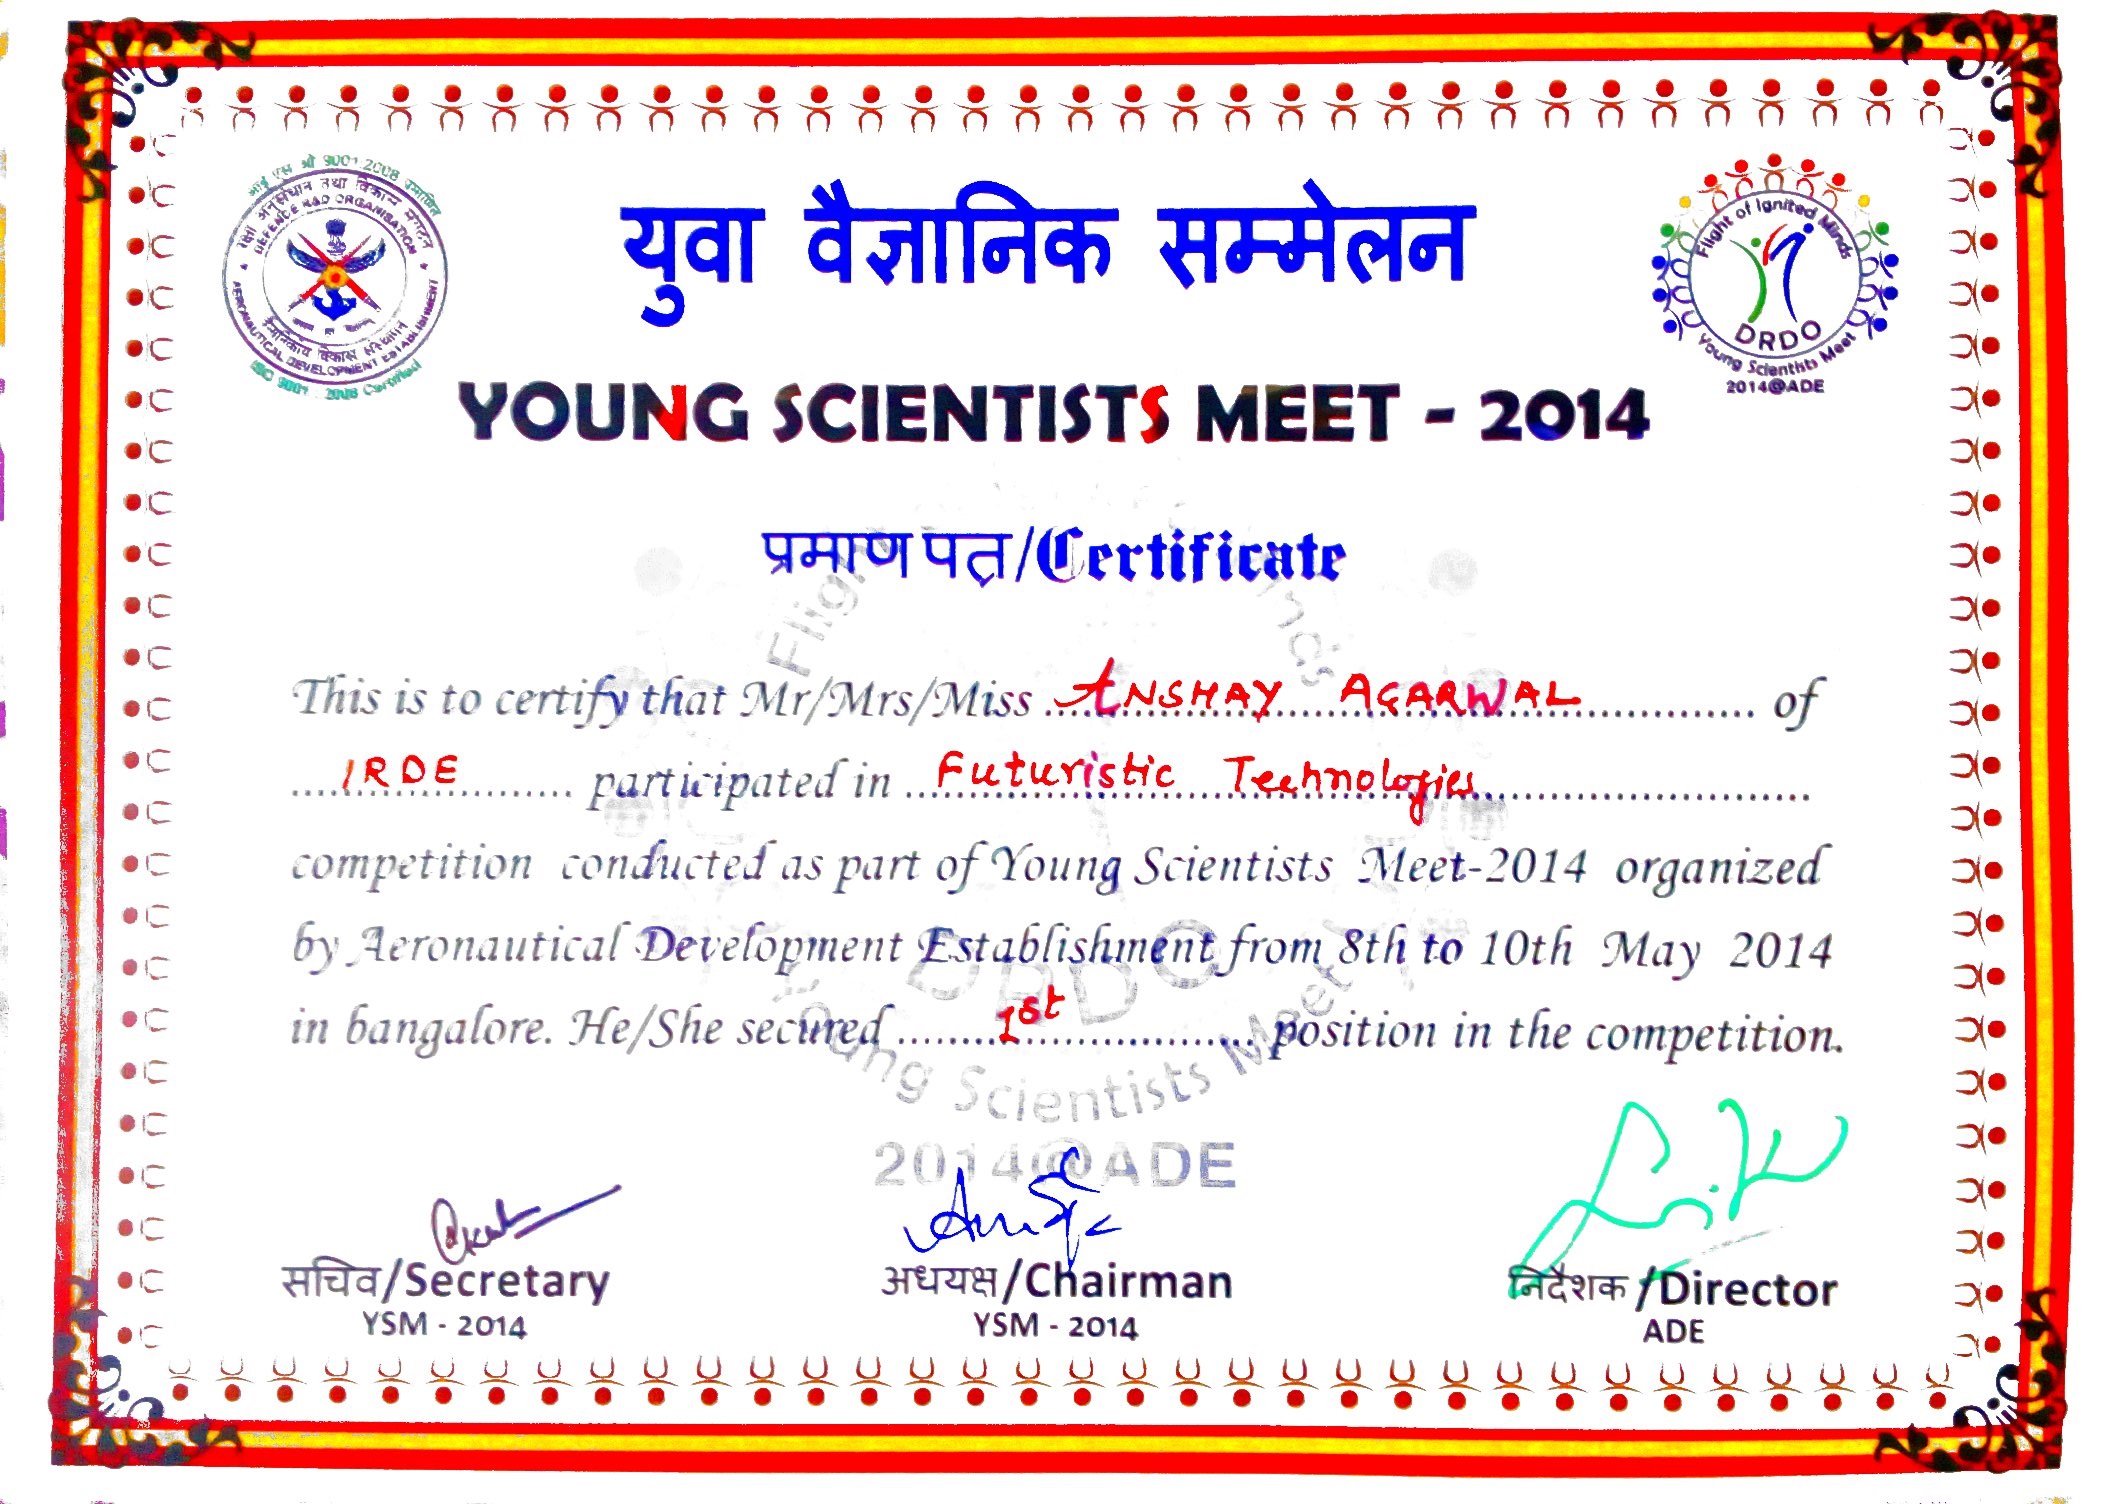 आई एस ओ 9001:2008 प्रमाणित
रक्षा अनुसंधान तथा विकास संगठन
DEFENCE R&D ORGANISATION
वैमानिकीय विकास संस्थान
AERONAUTICAL DEVELOPMENT ESTABLISHMENT
ISO 9001 : 2008 Certified
युवा वैज्ञानिक सम्मेलन
Flight of Ignited Minds
DRDO
Young Scientists Meet
2014@ADE
YOUNG SCIENTISTS MEET - 2014
प्रमाण पत्र/Certificate
This is to certify that Mr/Mrs/Miss ANSHAY AGARWAL of
IRDE participated in Futuristic Technologies
competition conducted as part of Young Scientists Meet-2014 organized
by Aeronautical Development Establishment from 8th to 10th May 2014
in bangalore. He/She secured 1st position in the competition.
DRDO
Young Scientists Meet
2014@ADE
सचिव/Secretary
YSM - 2014
अध्यक्ष/Chairman
YSM - 2014
निदेशक/Director
ADE